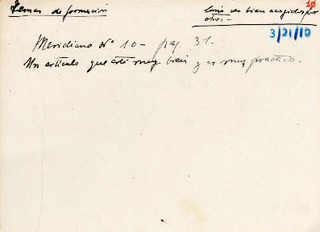 Temas de formación
Como ser bien acogidos por
otros.
10
3/21/10
Meridiano Nº 10 - pag. 31.
Un artículo que está muy bien y es muy práctico.